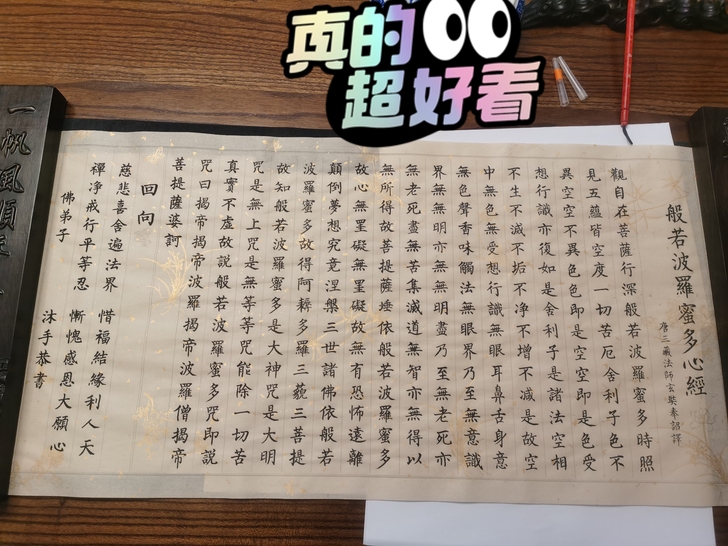 真的
超好看
般若波羅蜜多心經
唐三藏法師玄奘奉詔譯
觀自在菩薩行深般若波羅蜜多時照
見五蘊皆空度一切苦厄舍利子色不
異空空不異色色即是空空即是色受
想行識亦復如是舍利子是諸法空相
不生不滅不垢不净不增不減是故空
中無色無受想行識無眼耳鼻舌身意
無色聲香味觸法無眼界乃至無意識
界無無明亦無無明盡乃至無老死亦
無老死盡無苦集滅道無智亦無得以
無所得故菩提薩埵依般若波羅蜜多
故心無罣礙無罣礙故無有恐怖遠離
顛倒夢想究竟涅槃三世諸佛依般若
波羅蜜多故得阿耨多羅三藐三菩提
故知般若波羅蜜多是大神咒是大明
咒是無上咒是無等等咒能除一切苦
真實不虛故說般若波羅蜜多咒即說
咒曰揭帝揭帝波羅揭帝波羅僧揭帝
菩提薩婆訶
回向
慈悲喜舍遍法界 惜福結緣利人天
禪净戒行平等忍 慚愧感恩大願心
佛弟子 沐手恭書
一帆風順